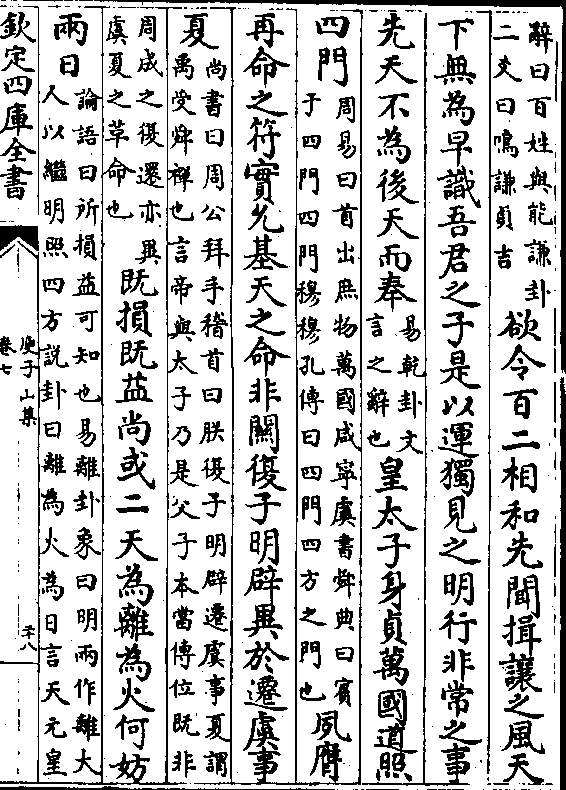 辭曰百姓與能謙卦
二爻曰鳴謙貞吉
欲令百二相和先聞揖讓之風天
下無為早識吾君之子是以運獨見之明行非常之事
先天不為後天而奉
易乾卦文
言之辭也
皇太子身貞萬國道照
四門
周易曰首出庶物萬國咸寧虞書舜典曰賓
于四門四門穆穆孔傳曰四門四方之門也
夙膺
再命之符實允基天之命非關復子明辟異於遷虞事
夏
尚書曰周公拜手稽首曰朕復子明辟遷虞事夏謂
禹受舜禪也言帝與太子乃是父子本當傳位既非
周成之復遷亦異
虞夏之草命也
既損既益尚或二天為離為火何妨
兩日
論語曰所損益可知也易離卦象曰明兩作離大
人以繼明照四方説卦曰離為火為日言天元皇
欽定四庫全書
庾子山集
卷七
二十八